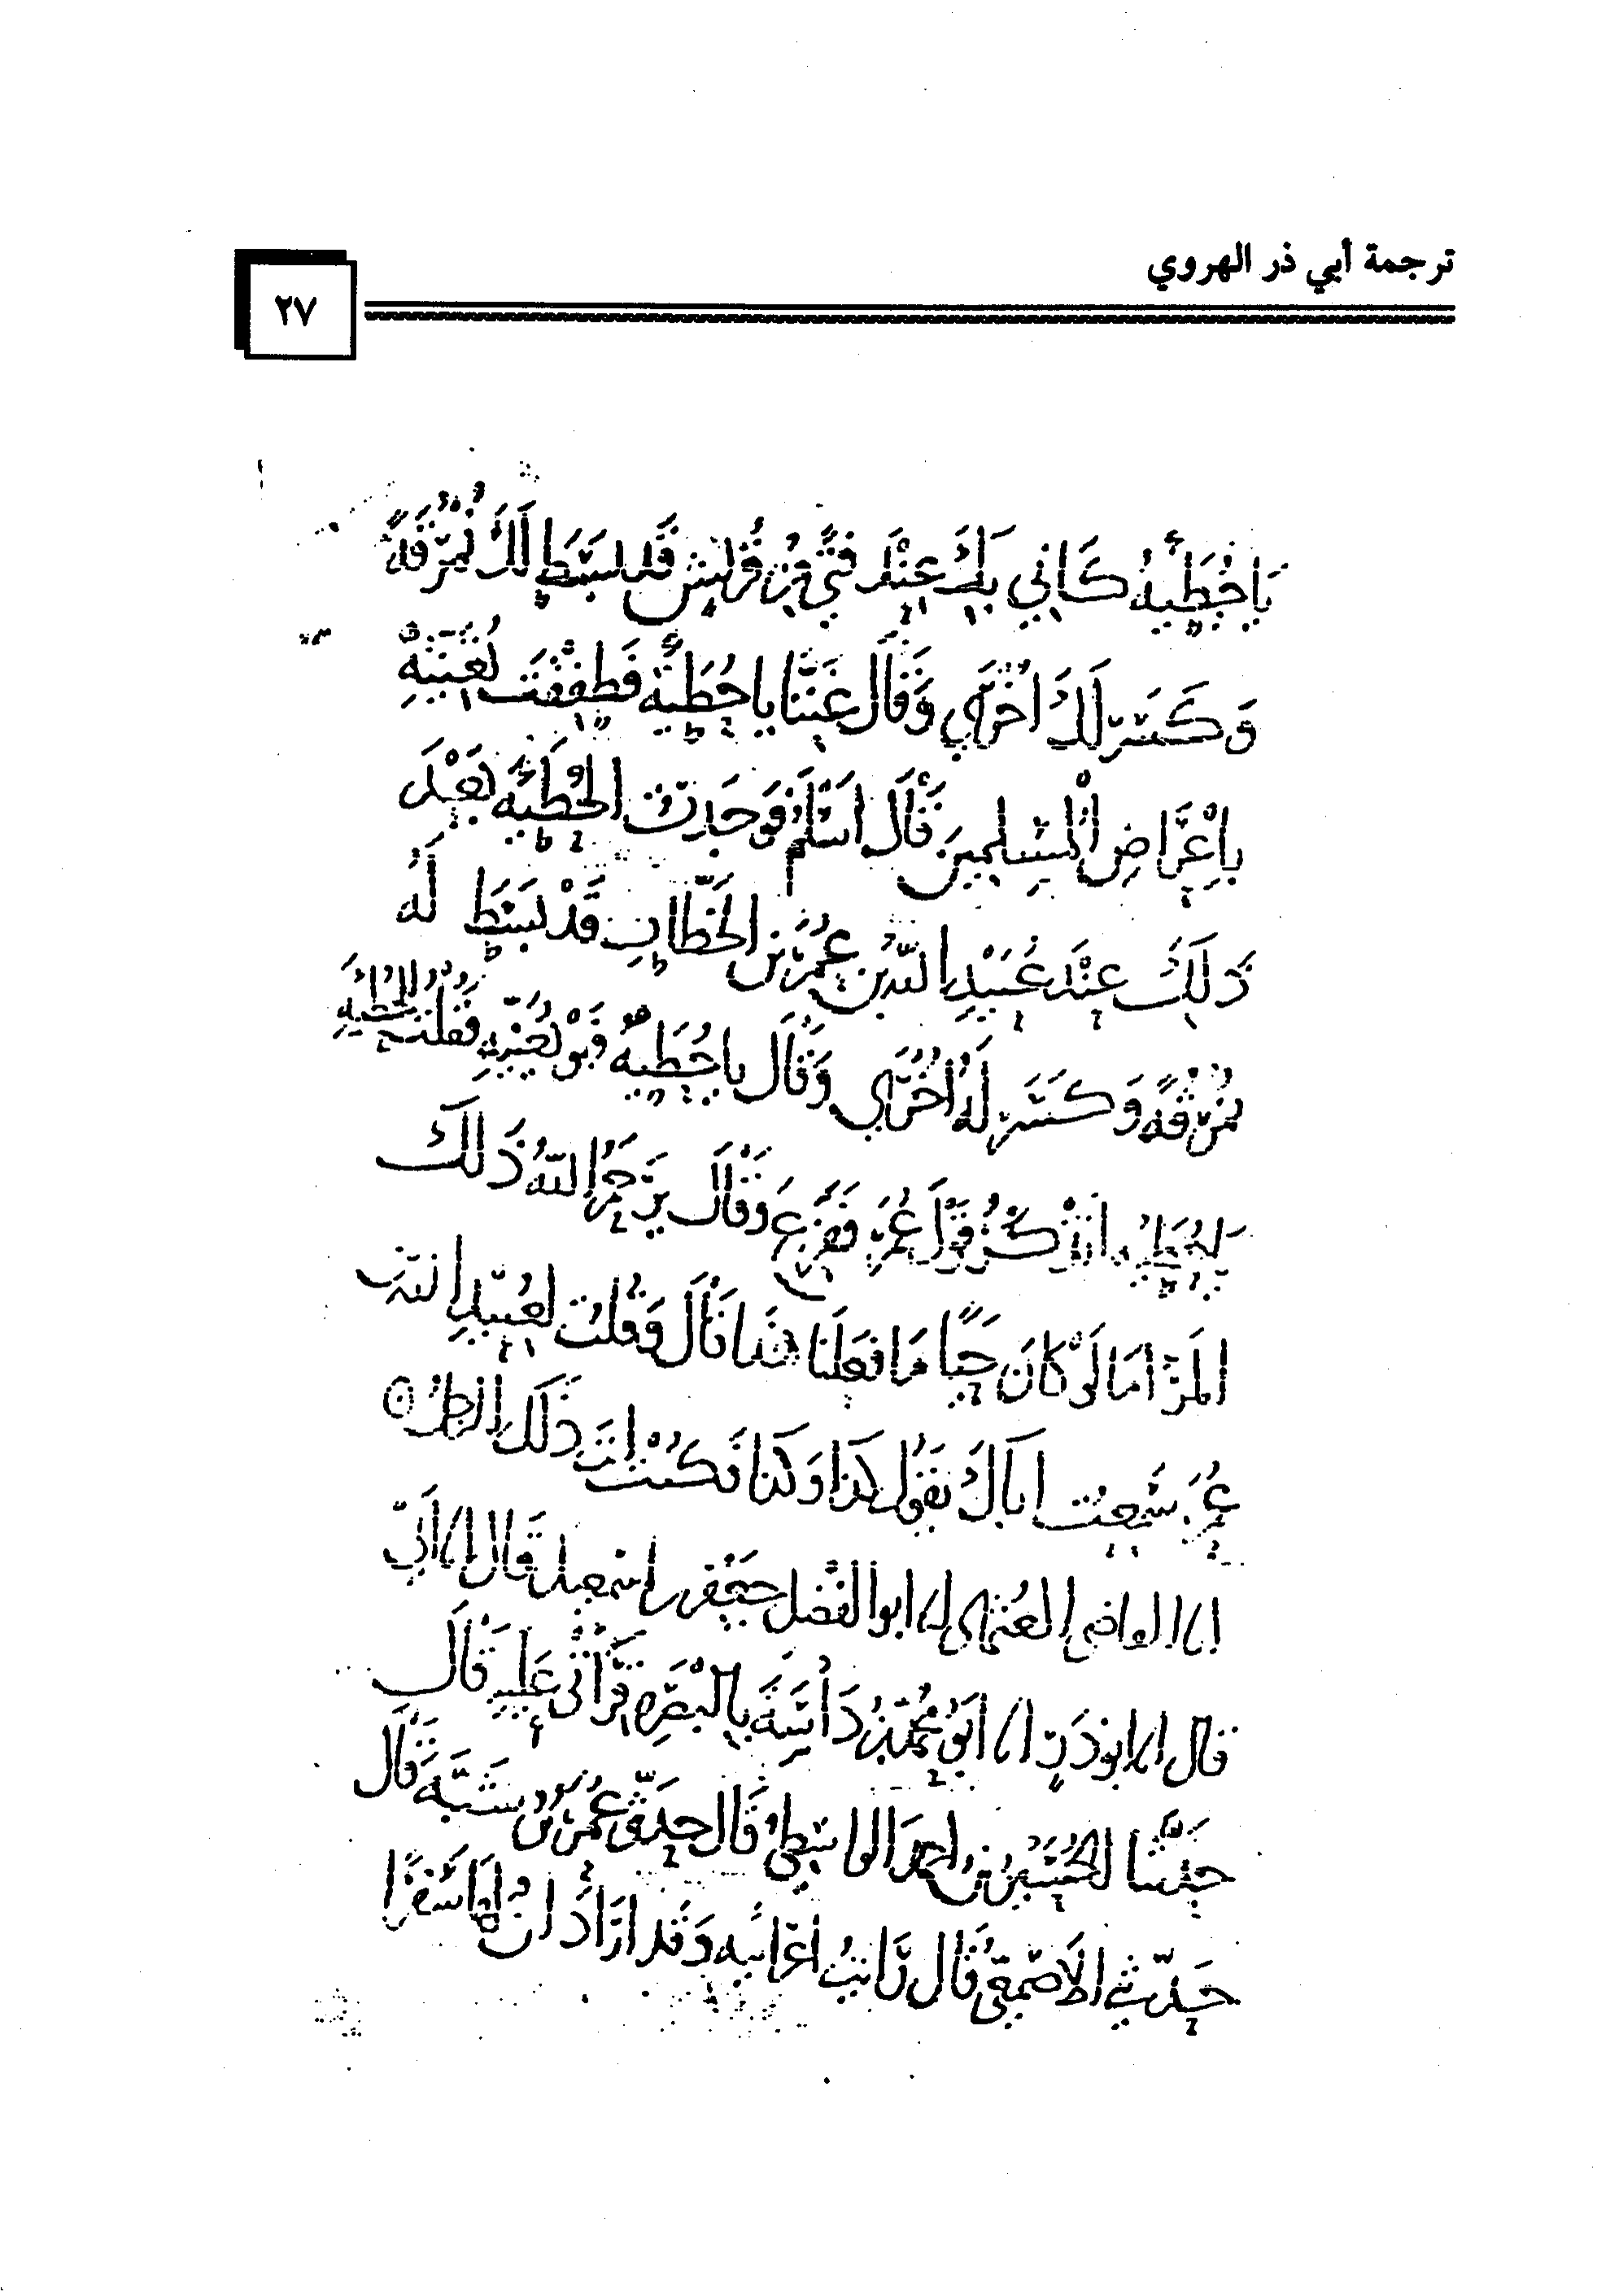 ترجمة أبي ذر الهروي
٢٧
يَا حُطَيْئَةُ كَأَنِّي بِكَ عِنْدَ فَتًى مِنْ قُرَيْشٍ قَد بَسَطَ لَكَ نُمْرُقَةً
وَكَسَرَ لَكَ اُخْرَى وَقَالَ غَنِّنَا يا حُطَيْئَة فَطَفِقْتَ تُغَنِّيْهِ
بِاَعْرَاضِ الْمُسْلِمِينَ قَالَ اَسْلَمُ فَوَجَدتُ الحُطَيْئَه بَعْدَ
ذَلِكَ عِنْدَ عُبَيْدِ اللهِ بنِ عُمَرَ بن الخَطَّابِ قَدْ بَسَطَ لَهُ
نُمْرُقَةً وَكَسَرَ لَهُ اُخْرَى وَقَالَ يا حُطَيْئَة فَهْوَ يُغَنِّيهِ فَقُلْتُ
اتَذْكُرُ قَوْلَ عُمَرَ فَفَزِعَ وَقَالَ يَرْحَمُ اللهُ ذَلِكَ
المَرْءَ امَا لَوْ كَانَ حَيًّا مَا فَعَلْنَا هَذَا قَالَ وَقُلْتُ لعُبَيْدِ اللهِ بن
عُمَرَ سَمِعتُ ابَاكَ يَقُولُ كَذَا وَكَذَا فَكُنْتَ انْتَ ذَلِكَ الرَجُل
انا العثماني انا ابو الفَضل جَعْفَر بن اسْمعيل قَال انا ابي
قال انا ابو ذَرٍّ انا ابَوُ مُحمَّدِ بْنُ دَاسَةَ بالْبَصْرَةِ قَرَأتُ عَلَيْهِ قَالَ
حدثنا الحُسَيْنُ بْنُ احمَدَ الواسِطيُّ قَال حَدَّثَنِي عُمَرُ بْنُ شَبَّةَ قَالَ
حَدَّثَنِي الاَصْمَعِيُّ قَالَ رَايْتُ اعْرَابِيه وَقَد ارَادَ انُ سَفَرًا